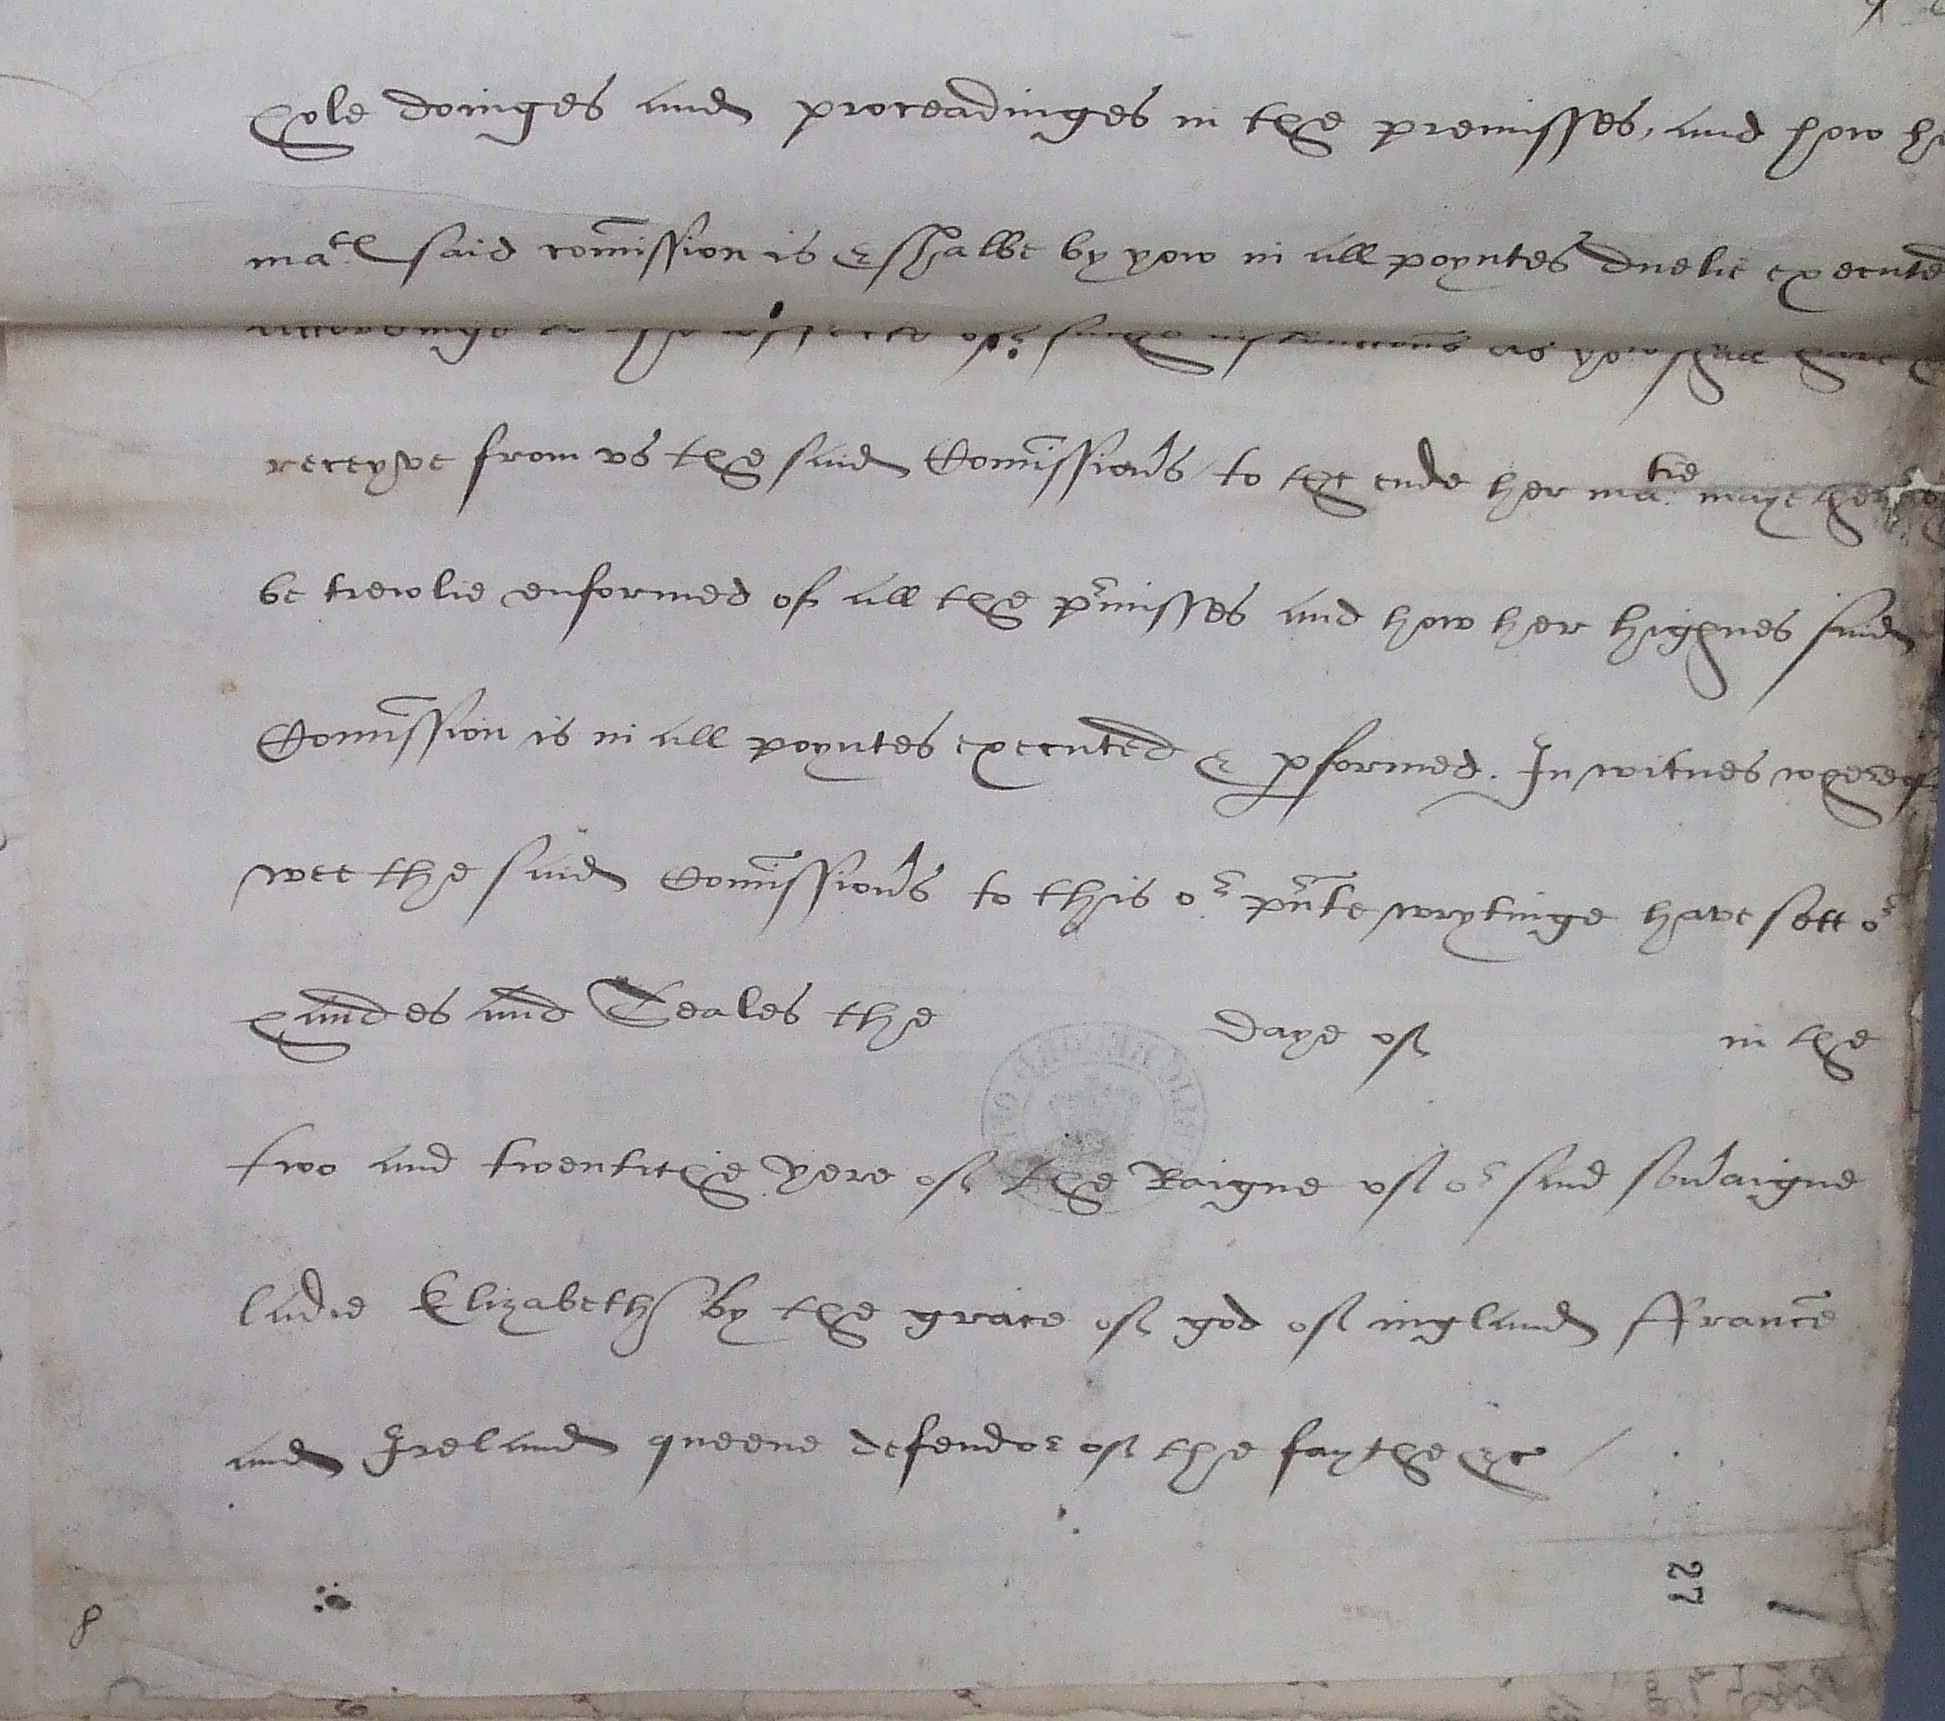 hole doinges and proceadinges in the premisses, and how he
matꝭ said com̄ission is & shalbe by yow in all poyntes duelie executed
accordinge to the effecte of suche instructions as yow shall have
receyve from vs the said Com̄issionʳs / to the ende her matie maye therbie
be trewlie enformed of all the pʳmisses and how her highnes said
Com̄ission is in all poyntes executed & ꝑformed. In witnes whereof
wee the said Com̄issionʳs to this oʳ pʳnte wrytinge have sett oʳ
handes and Seales the daye of in the
two and twentithe yere of the Raigne of oʳ said souʳaigne
ladie Elizabeth by the grace of god of ingland ffrance
and Ireland queene defendor of the faythe &c /
27
8